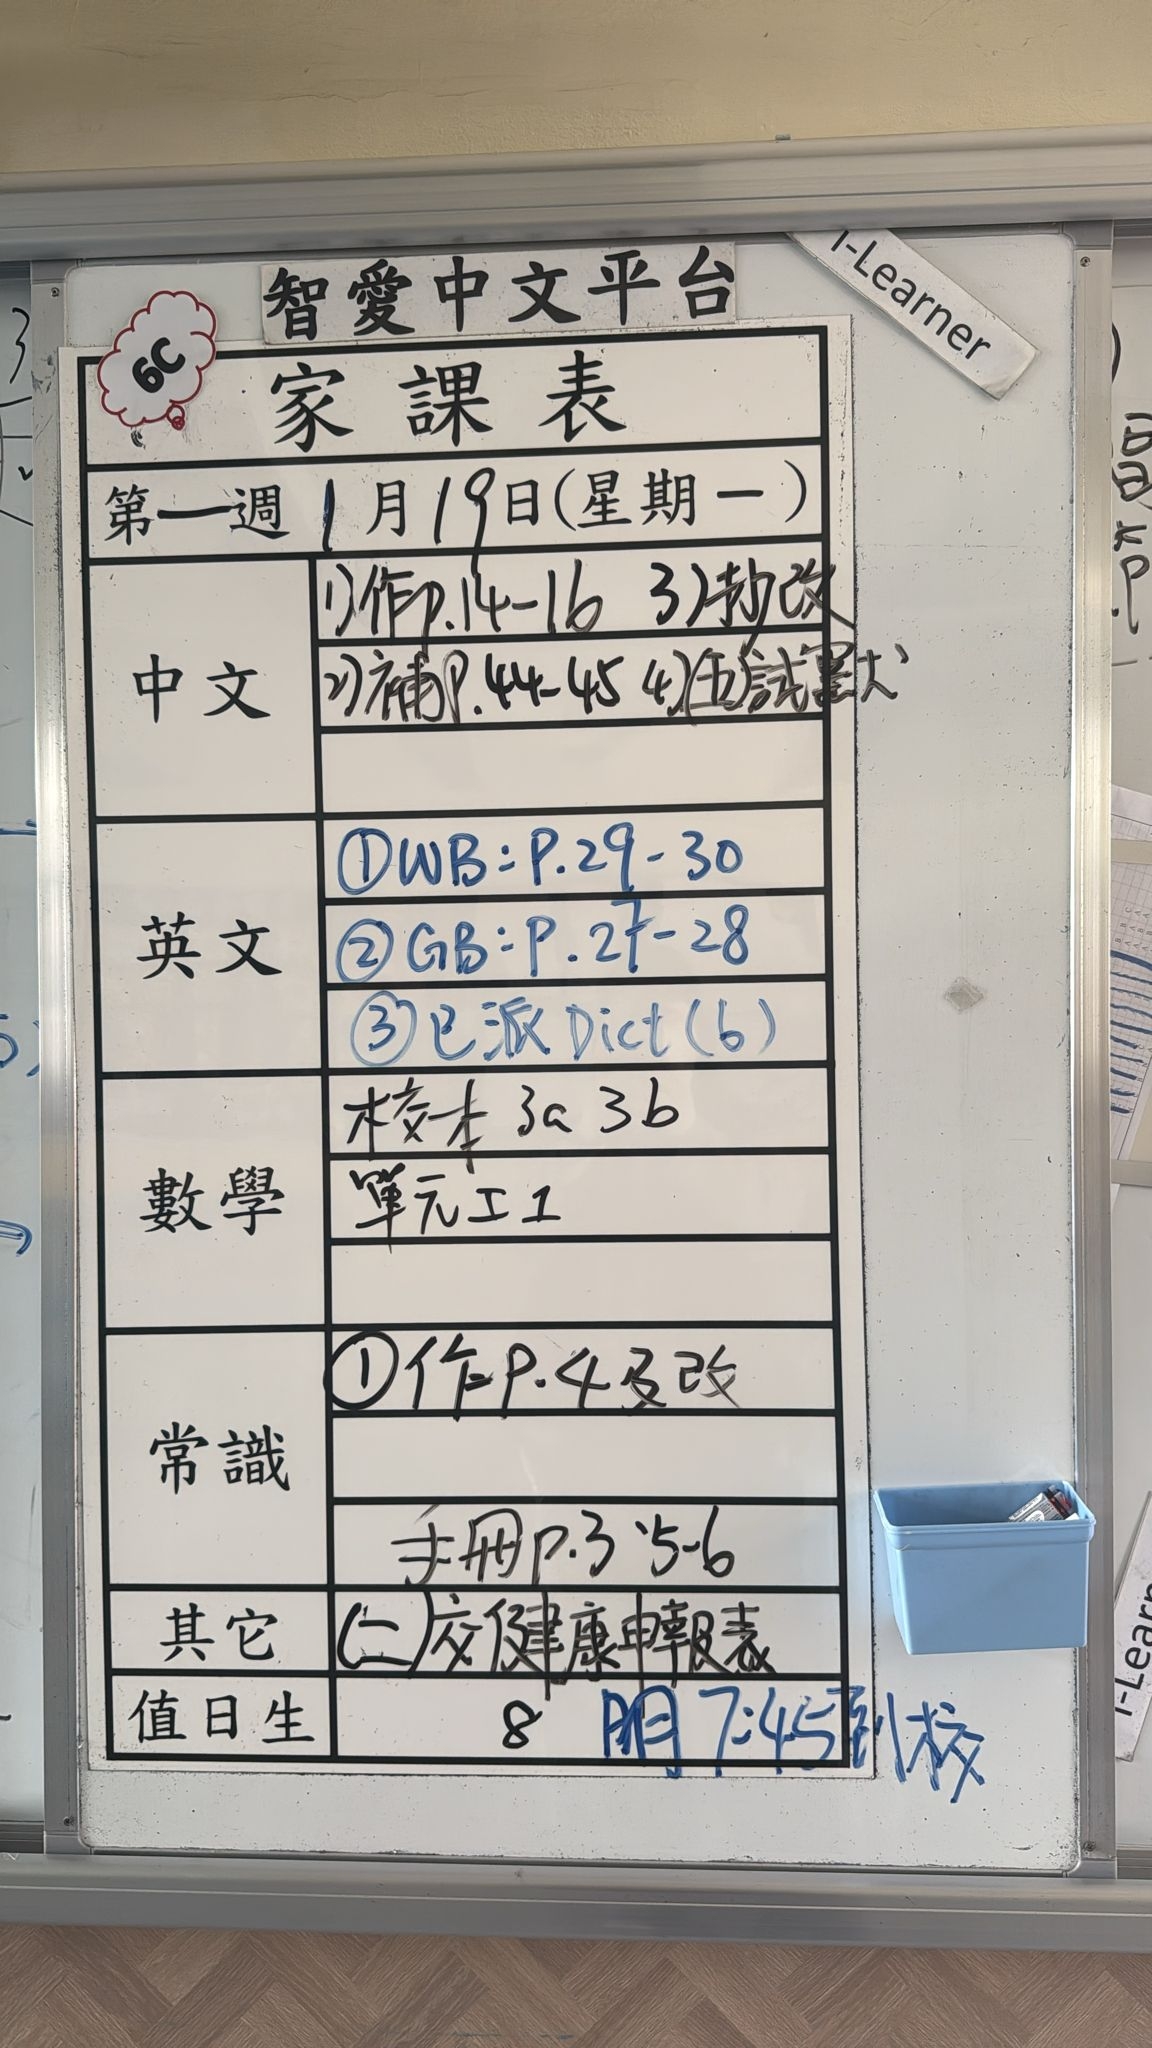 智愛中文平台
I-Learner
6C
家課表
第一週 1月19日(星期一)
中文
1)作p.14-16 3)抄改
2)補P.44-45 4)(五)試默
英文
①WB:P.29-30
②GB:P.27-28
③已派Dict(6)
數學
校本 3a 3b
單元工1
常識
①作P.4及改
手冊p.3、5-6
其它
(二)交健康申報表
值日生
8 明7:45到校